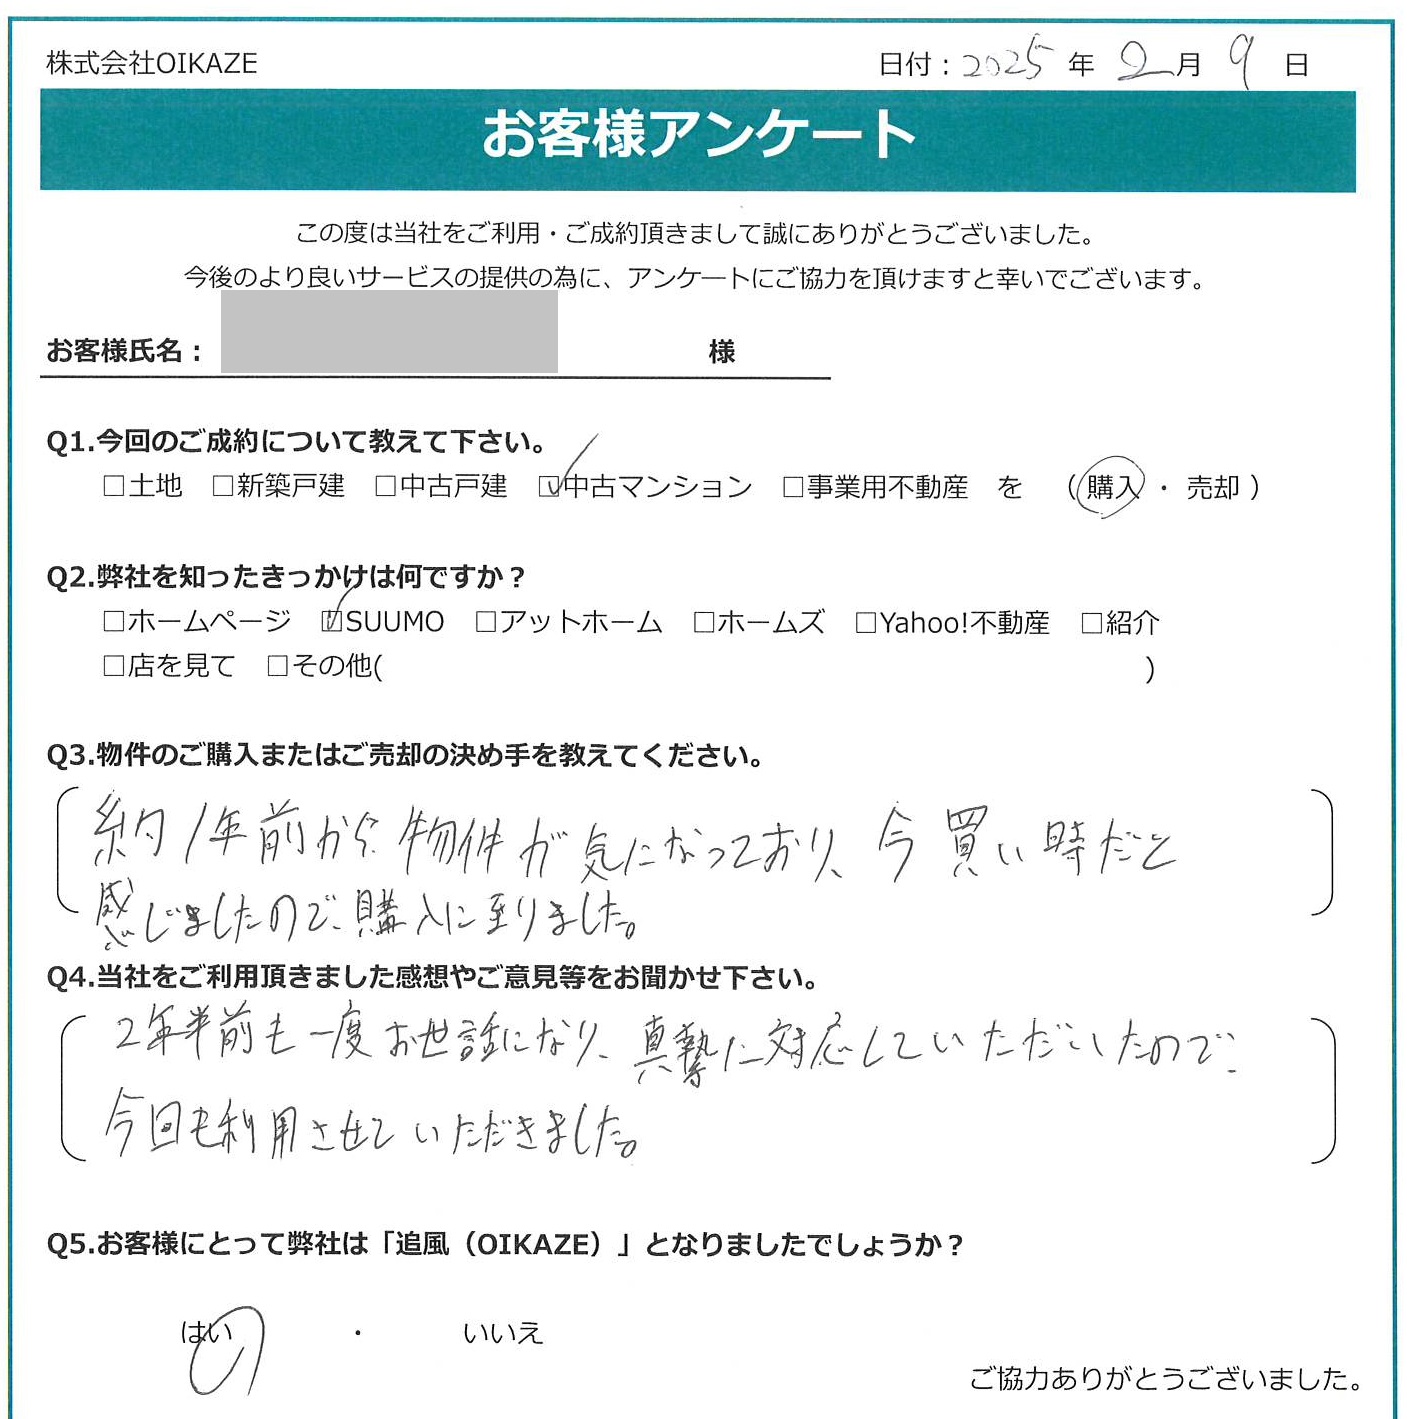 株式会社OIKAZE
日付：2025年 2月 9 日
お客様アンケート
この度は当社をご利用・ご成約頂きまして誠にありがとうございました。
今後のより良いサービスの提供の為に、アンケートにご協力を頂けますと幸いでございます。
お客様氏名： 様
Q1.今回のご成約について教えて下さい。
□土地 □新築戸建 □中古戸建 ☑中古マンション □事業用不動産 を （購入 ・ 売却）
Q2.弊社を知ったきっかけは何ですか？
□ホームページ ☑SUUMO □アットホーム □ホームズ □Yahoo!不動産 □紹介
□店を見て □その他( )
Q3.物件のご購入またはご売却の決め手を教えてください。
約1年前から物件が気になっており、今買い時だと
感じましたので、購入に至りました。
Q4.当社をご利用頂きました感想やご意見等をお聞かせ下さい。
2年半前も一度お世話になり、真摯に対応していただきましたので、
今回も利用させていただきました。
Q5.お客様にとって弊社は「追風（OIKAZE）」となりましたでしょうか？
はい ・ いいえ
ご協力ありがとうございました。